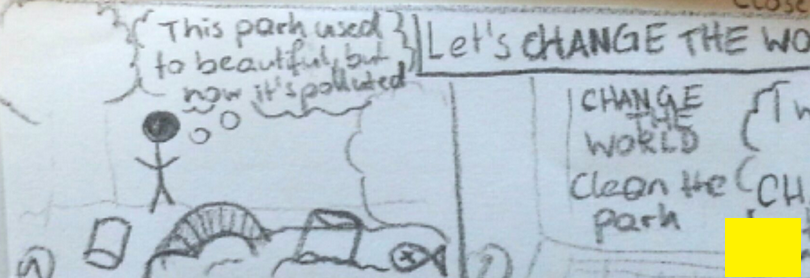 This park used
to beautiful, but
now it's polluted
Let's CHANGE THE WO
CHANGE
THE
WORLD
Clean the
park
CH